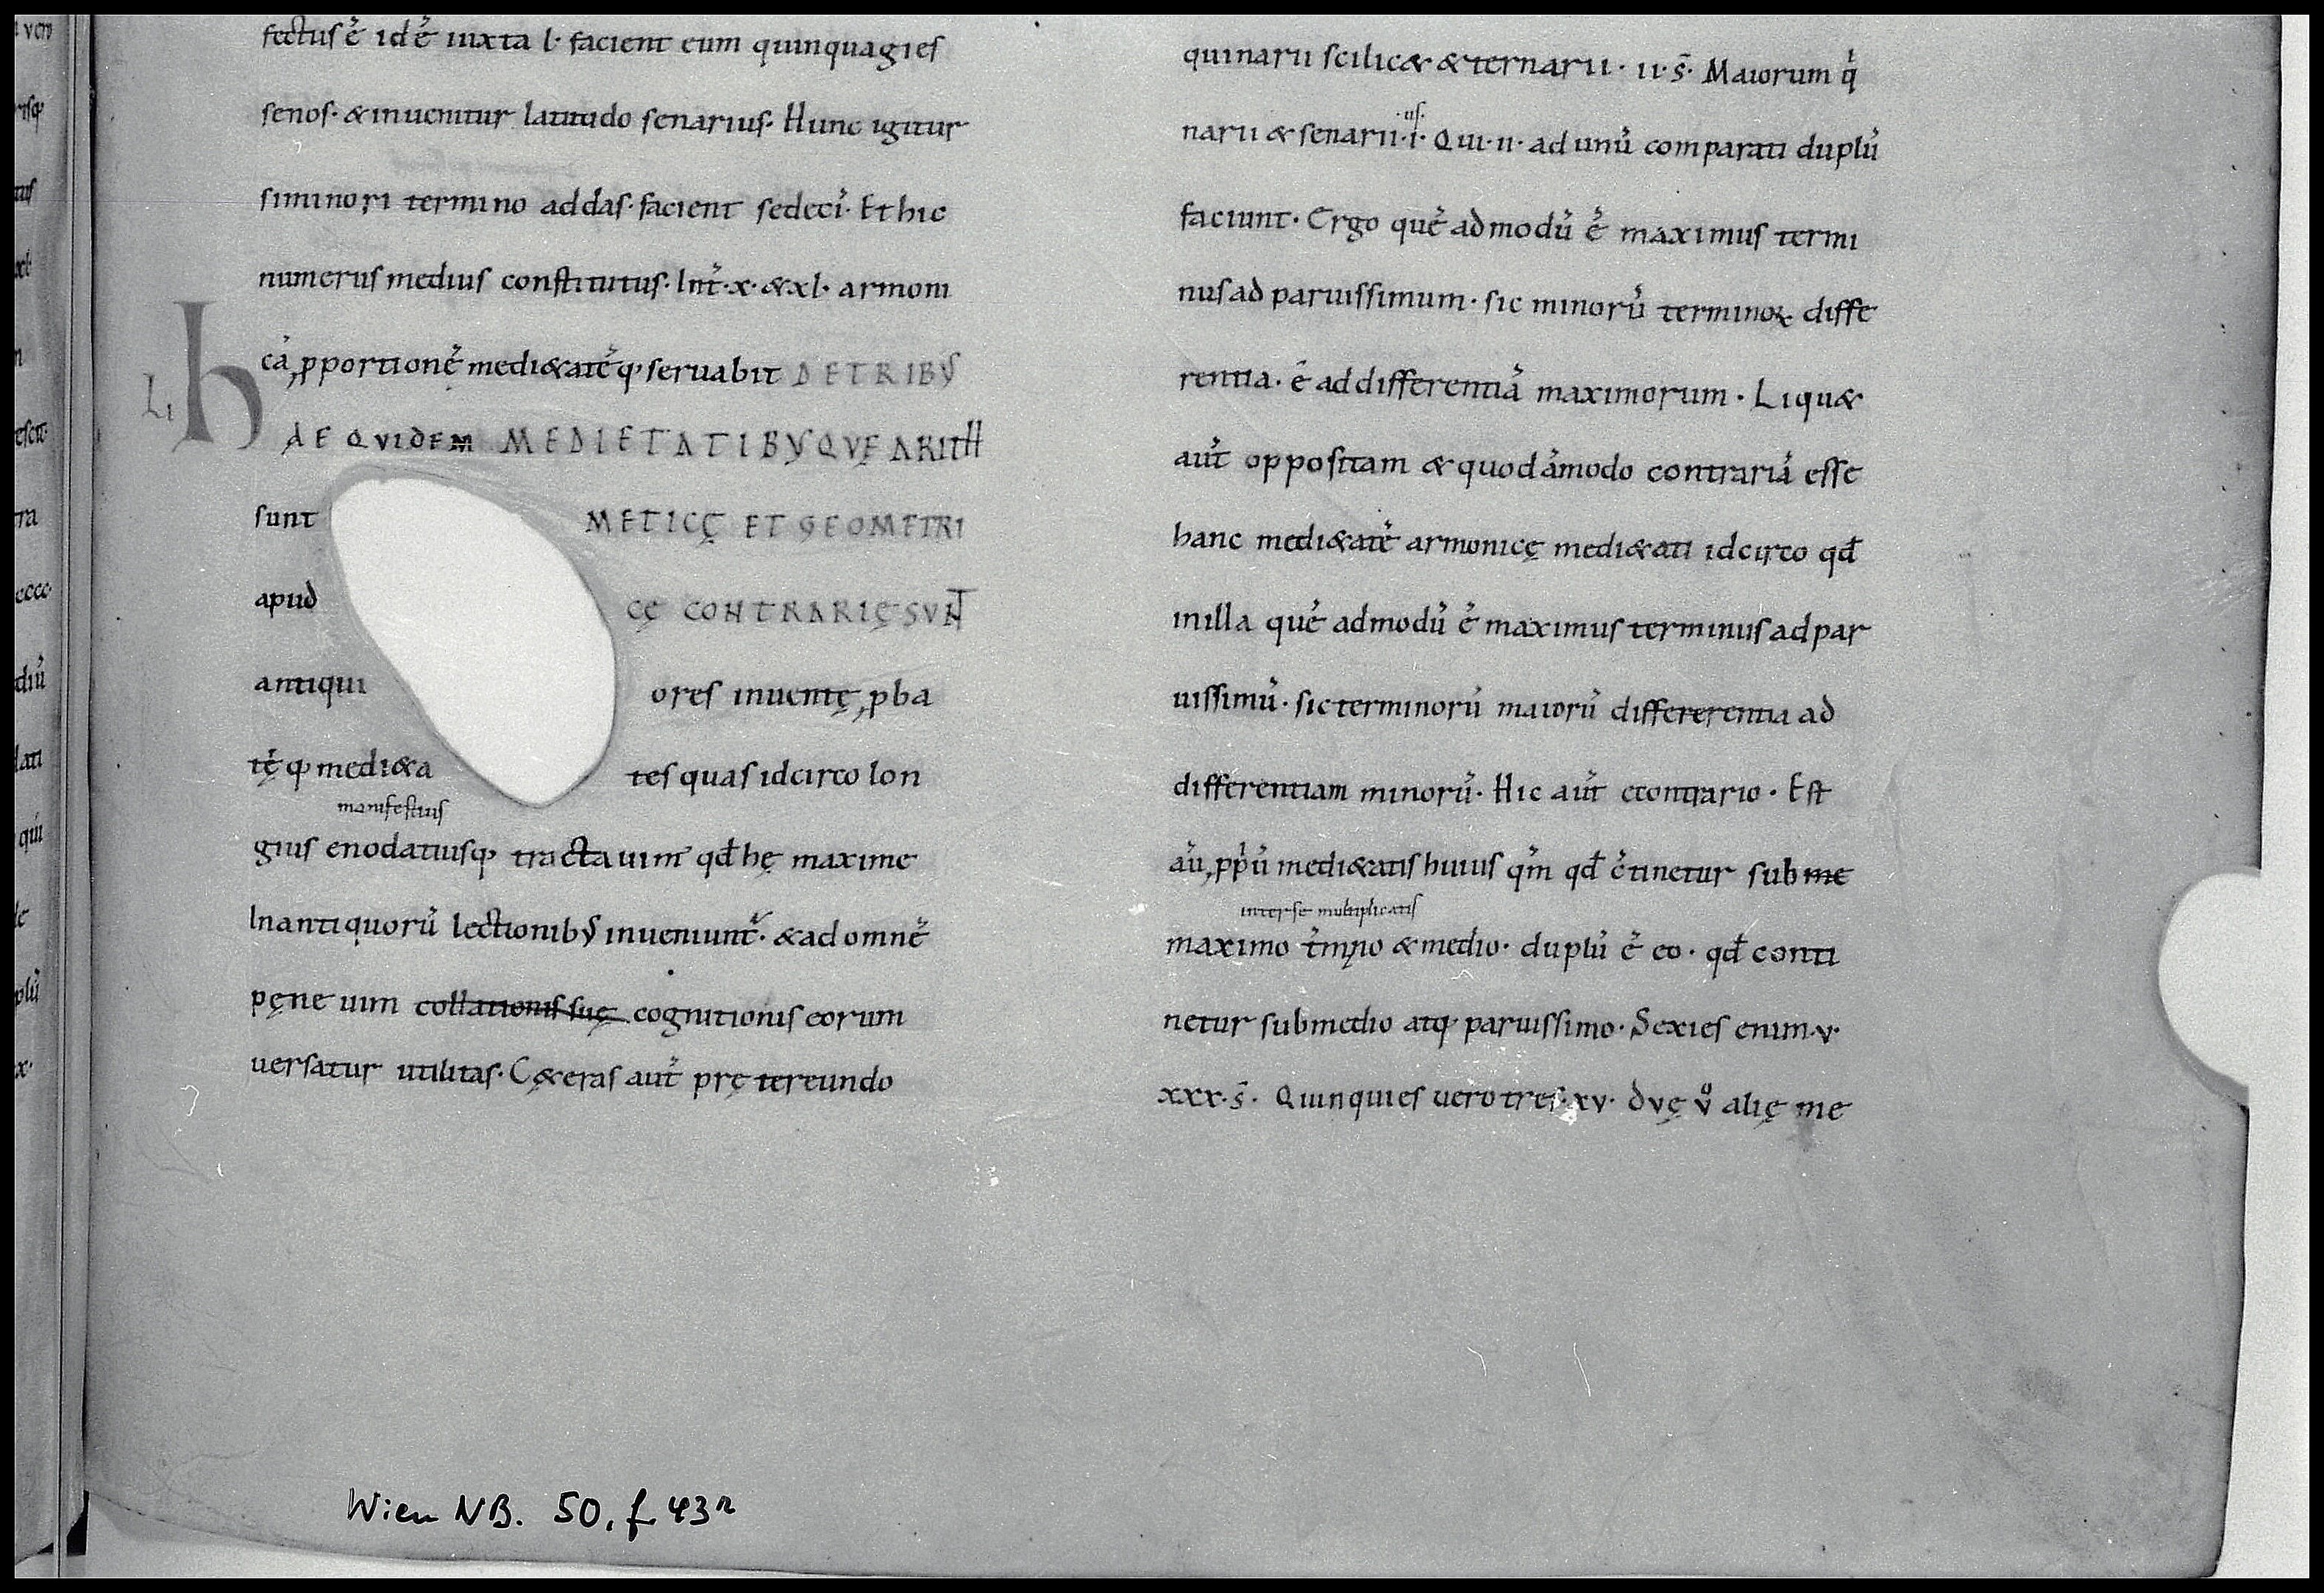 fectus ē idē iuxta l· facient eum quinquagies
senos· &inuenitur latitudo senarius· Hunc igitur
siminori termino addas· facient sedecī· Et hic
numerus medius constitutus· Int̄·x·&xl· armoni
cā ꝓportionē medi&atēq· seruabit DETRIBVS
LI
hAE QVIDEM MEDIETATIBVS QVE ARITH
sunt METICĘ ET GEOMETRI
apud CĘ CONTRARIĘ SVNT
antiqui ores inuentę ꝓba
tę̄q· medi&a tes quas idcirco lon
manifestius
gius enodatiusq· tractauim̄ qđ hę maxime
Inantiquorū lectionibus inueniunt̄· &ad omnē
pęne uim collationis suę cognitionis eorum
uersatur utilitas· C&eras aut̄ prętereundo
quinarii scilic& &ternarii· ii·s̄· Maiorum q̇
narii & senarii·i· Qui·ii· ad unū comparati duplū
faciunt· Ergo quēadmodū ē maximus termi
nus ad paruissimum· sic minorū terminoꝝ diffe
rentia· ē ad differentiā maximorum· Liqu&
aut̄ oppositam & quodāmodo contrariā esse
hanc medi&atē armonicę medi&ati idcirco qđ
inilla quēadmodū ē maximus terminus ad par
uissimū· sic terminorū maiorū differerentia ad
differentiam minorū· Hic aut̄ econtrario· Est
aū ꝓp̄ū medi&atis huius qm̄ qđ c̄tinetur sub me
inter se multiplicatis
maximo t̄mino & medio· duplū ē eo· qđ conti
netur sub medio atq· paruissimo· Sexies enim·v·
xxx·s̄· Quinquies uero tres·xv· dvę v̊ alię me
Wien NB. 50, f 43r